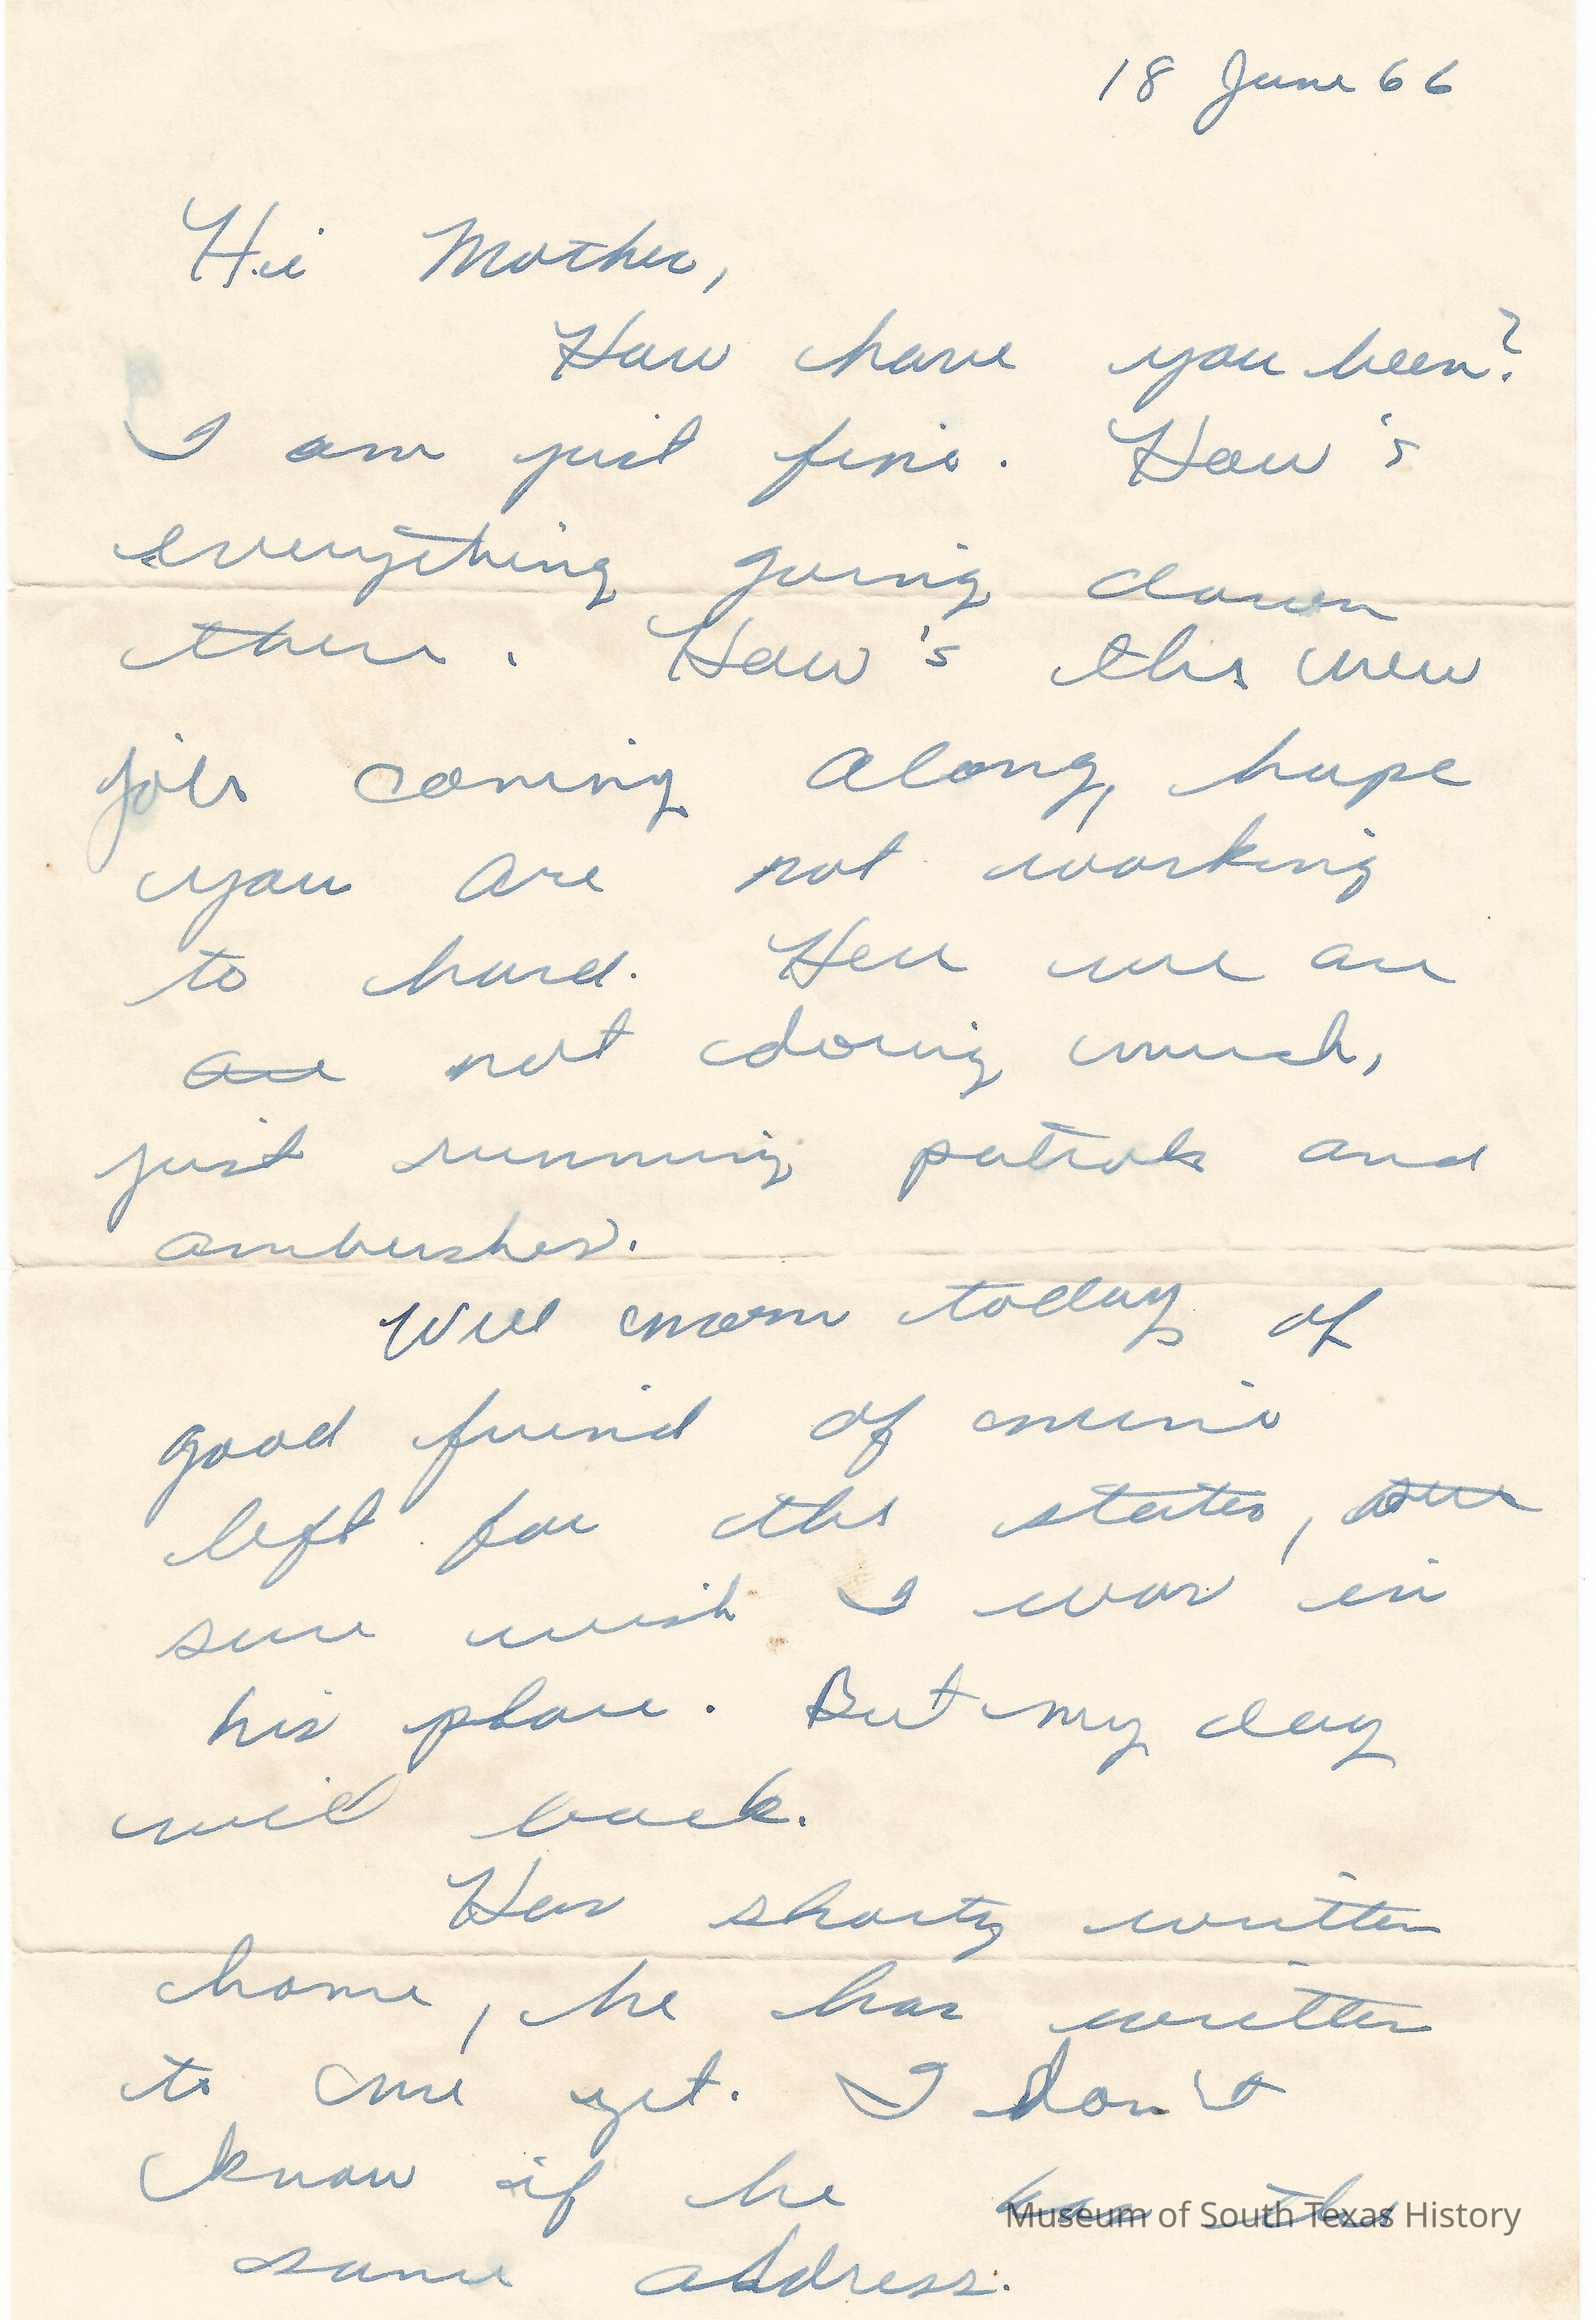 18 June 66
Hi Mother,
How have you been?
I am just fine. How's
everything going down
there. How's the new
job coming along, hope
you are not working
to hard. Here we are
are not doing much,
just running patrols and
ambushes.
Well mom today of
good friend of mine
left for the states, sure
sure wish I was in
his place. But my day
will back.
Has shorty written
home, he has written
to me yet. I don't
know if he has the
same address.
Museum of South Texas History